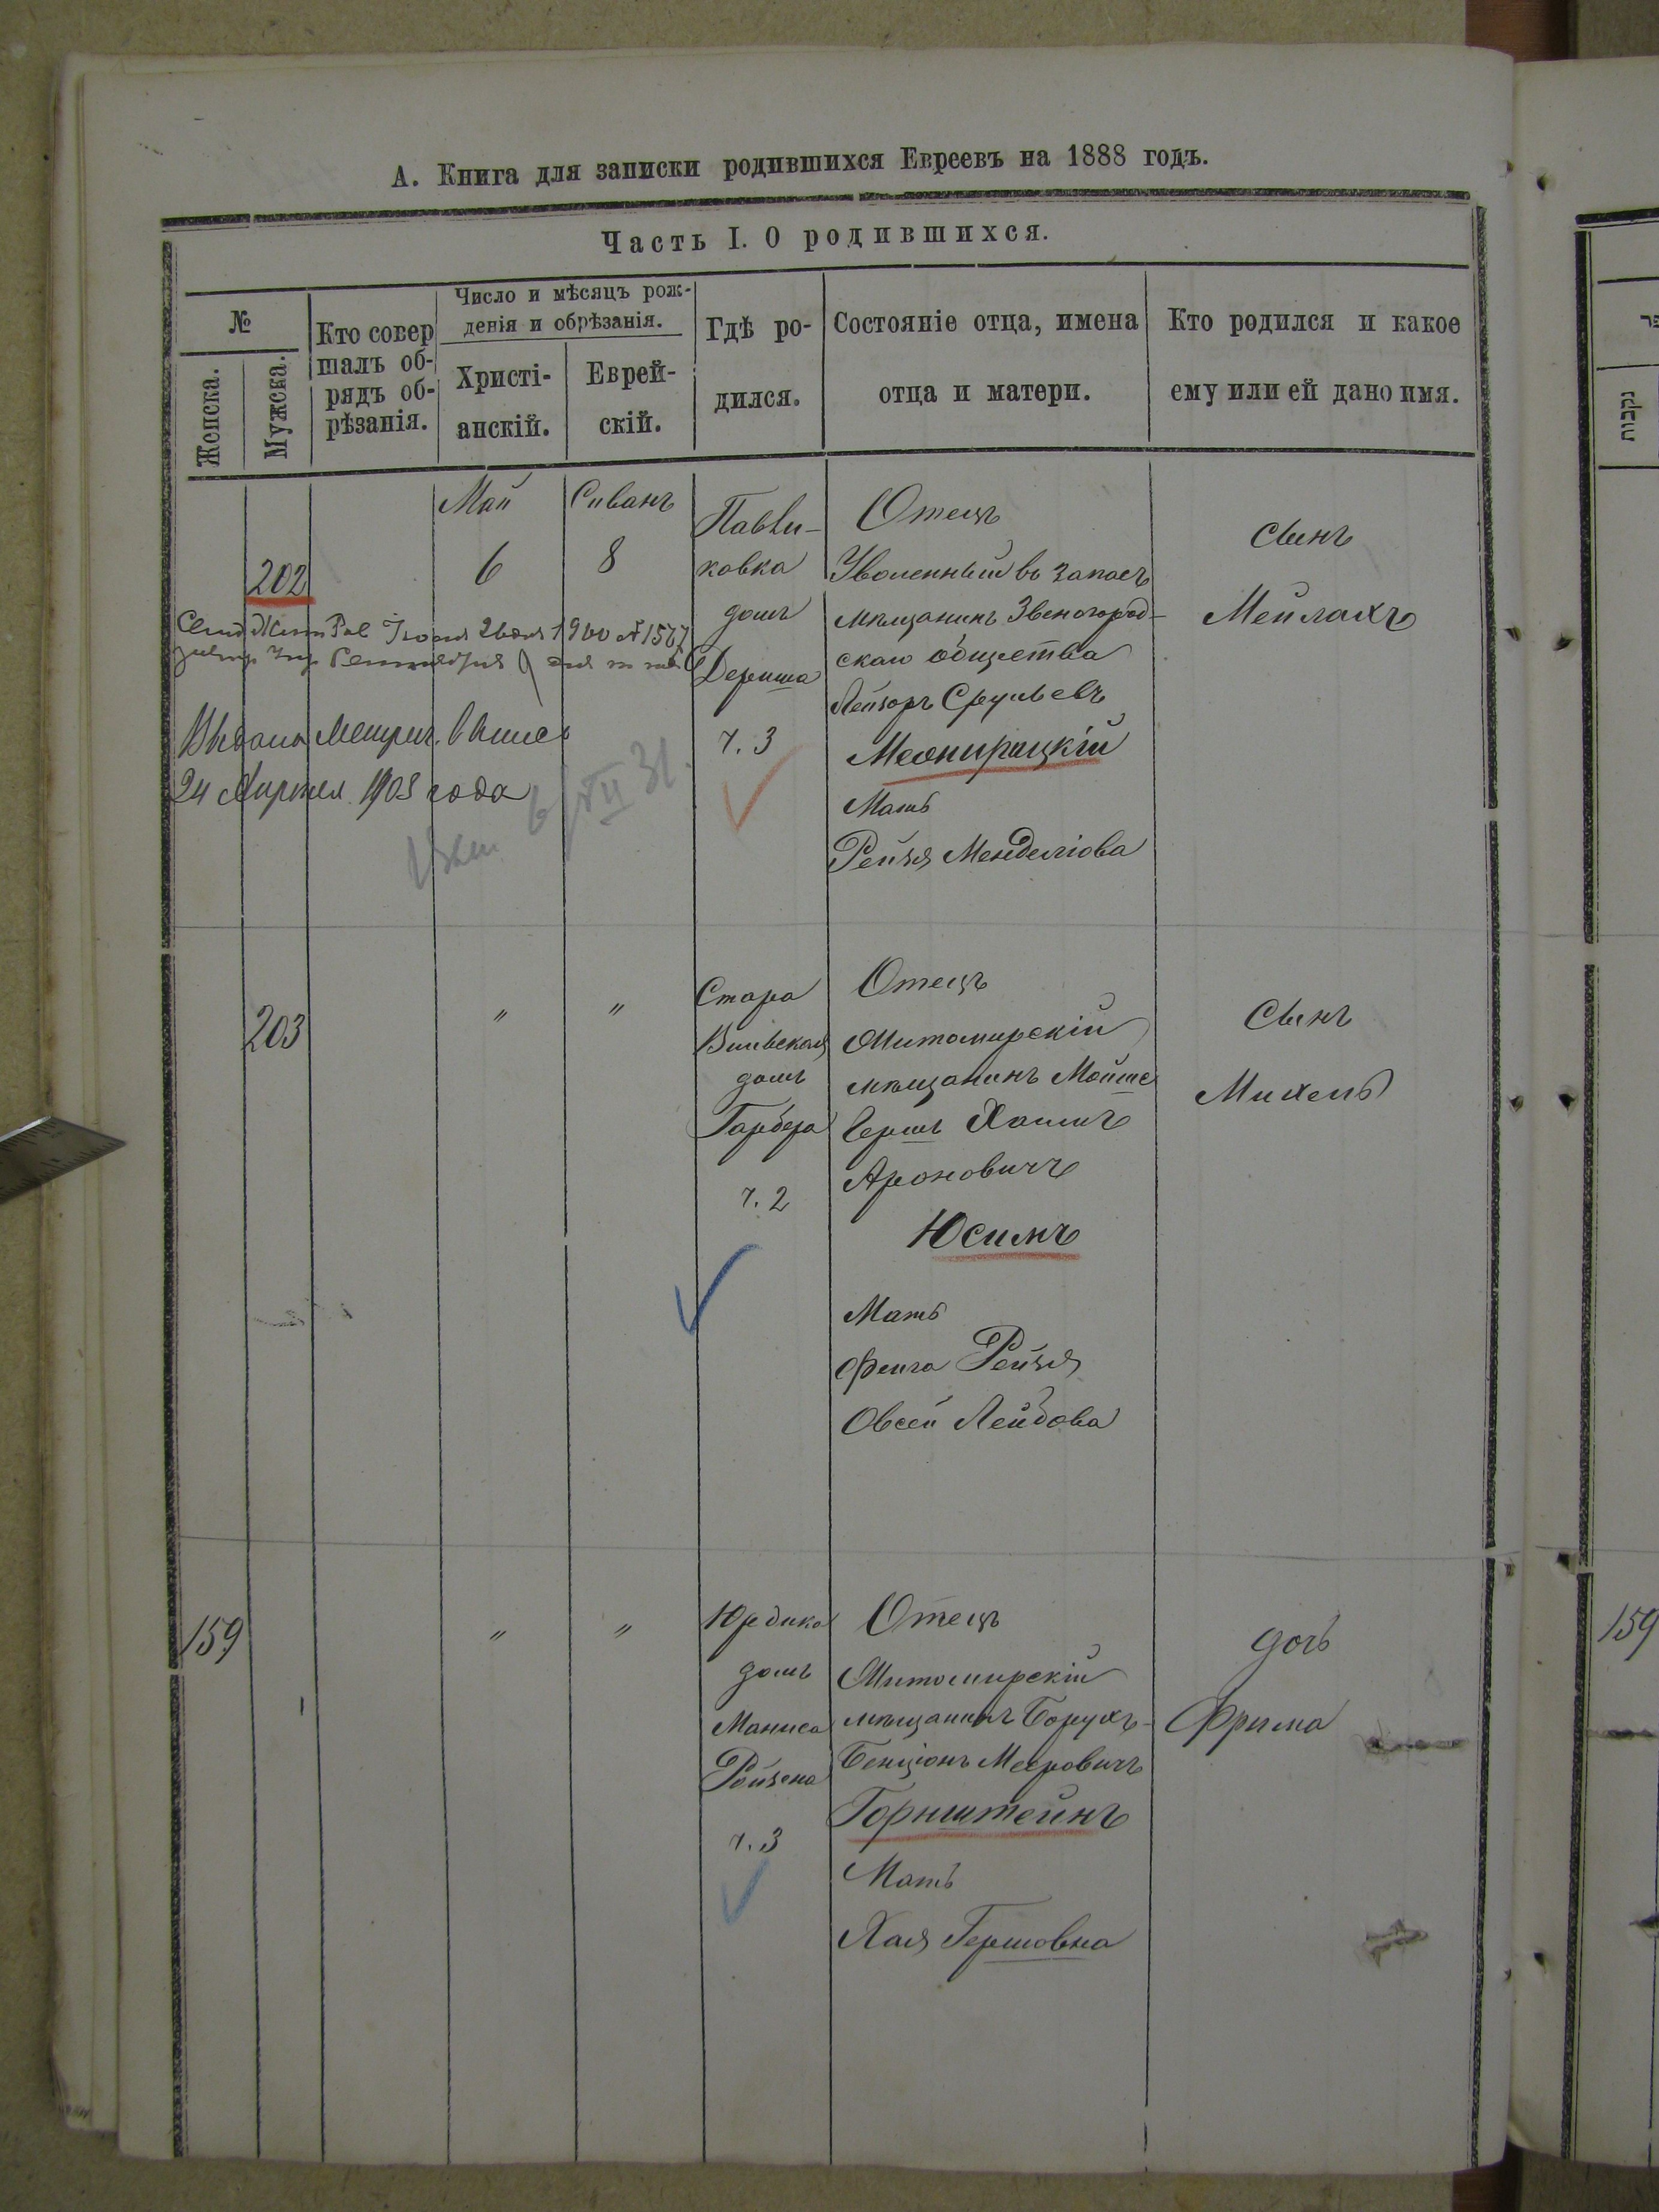 А. Книга для записки родившихся Евреевъ на 1888 годъ.
Часть I. О родившихся.
№
Женска.
Мужска.
Кто совер
шалъ об-
рядъ об-
рѣзанія.
Число и мѣсяцъ рож-
денія и обрѣзанія.
Христі-
анскій.
Еврей-
скій.
Гдѣ ро-
дился.
Состояніе отца, имена
отца и матери.
Кто родился и какое
ему или ей дано имя.
202
Май
6
Сиванъ
8
Павли-
ковка
домъ
Дериша
ч. 3
Отецъ
Уволенный въ запасъ
мѣщанинъ Звеногород-
скаго общества
Лейзоръ Срульевъ
Меонирацкій
Мать
Рейзя Менделіова
Сынъ
Мейлахъ
Выдана метрич. выпись
24 Апреля 1903 года
203
"
"
Стара
Вильская
домъ
Гарбера
ч. 2
Отецъ
Житомирскій
мѣщанинъ Мойше
Гершъ Хаимъ
Ароновичъ
Юсимъ
Мать
Фейга Рейзя
Овсей Лейбова
Сынъ
Михель
159
"
"
Юрдика
домъ
Маниса
Ройзена
ч. 3
Отецъ
Житомирскій
мѣщанинъ Борухъ-
Бенціонъ Мееровичъ
Горнштейнъ
Мать
Хая Гершовна
дочь
Фрима
נקבות
159